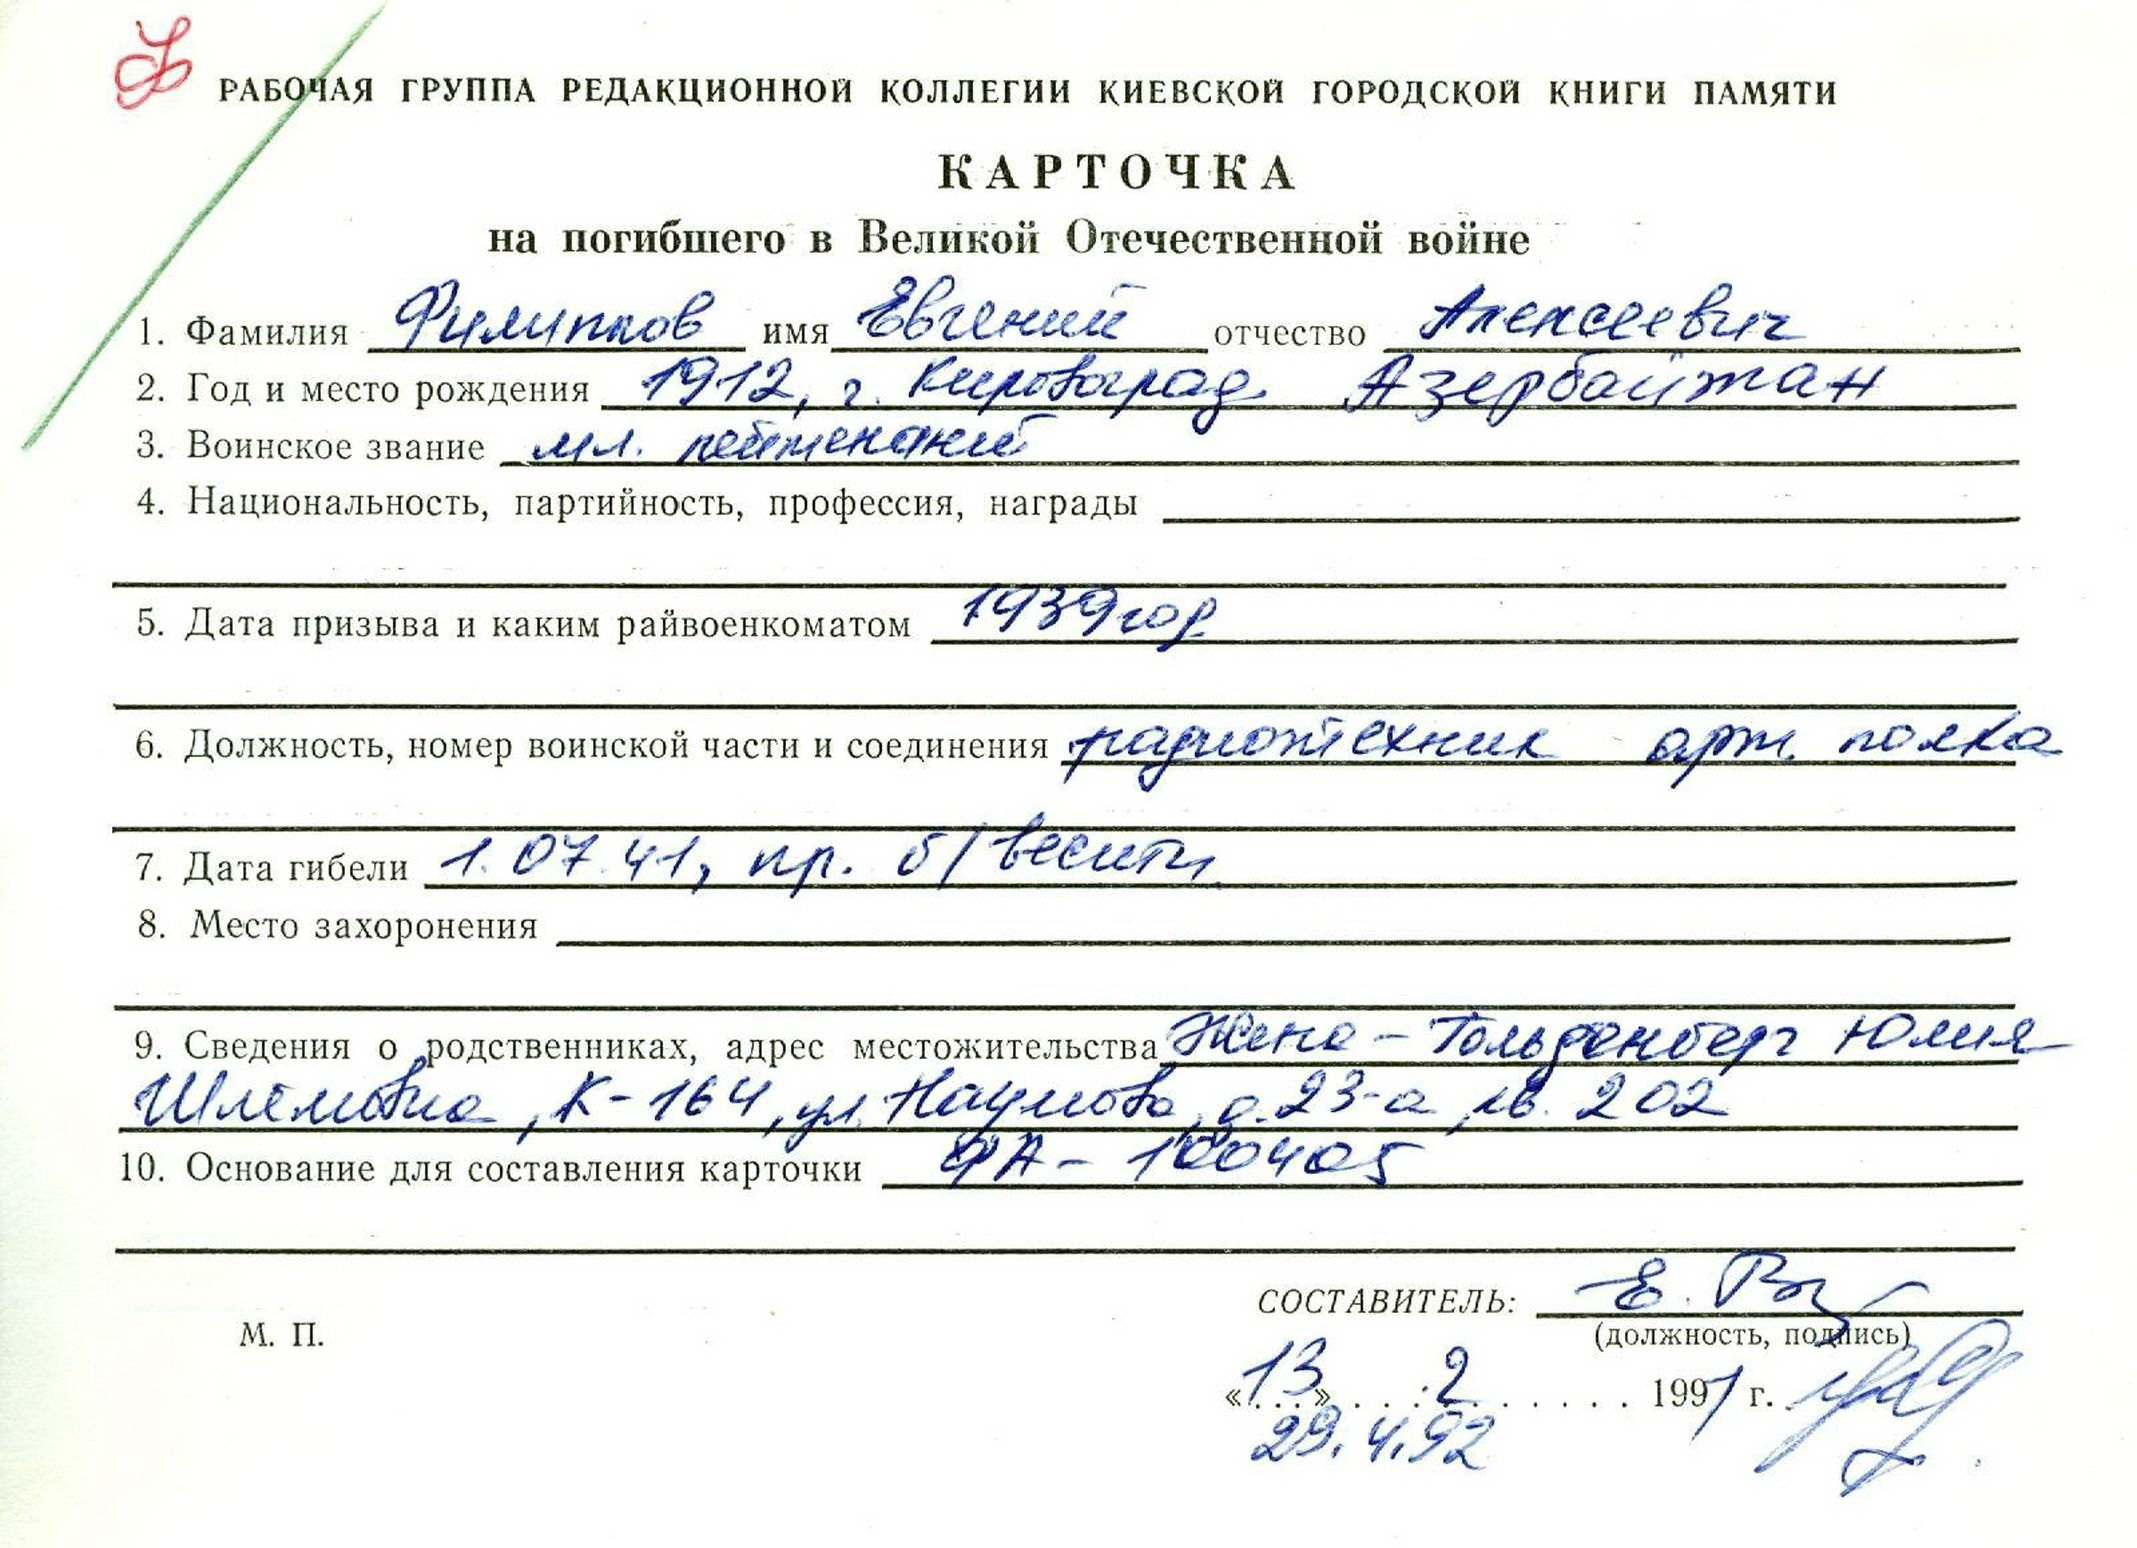 Ф
РАБОЧАЯ ГРУППА РЕДАКЦИОННОЙ КОЛЛЕГИИ КИЕВСКОЙ ГОРОДСКОЙ КНИГИ ПАМЯТИ
КАРТОЧКА
на погибшего в Великой Отечественной войне
1. Фамилия Филипков имя Евгений отчество Алексеевич
2. Год и место рождения 1912, г. Кировоград Азербайжан
3. Воинское звание мл. лейтенант
4. Национальность, партийность, профессия, награды
5. Дата призыва и каким райвоенкоматом 1939 год
6. Должность, номер воинской части и соединения радиотехник арт. полка
7. Дата гибели 1.07.41, пр. б/вести
8. Место захоронения
9. Сведения о родственниках, адрес местожительства Жена - Гольденберг Юлия
Шлемовна, К-164, ул. Наумова, д. 23-а, кв. 202
10. Основание для составления карточки ФА - 100405
СОСТАВИТЕЛЬ: Е.
(должность, подпись)
М. П.
«13» 2 1991 г.
29.4.92